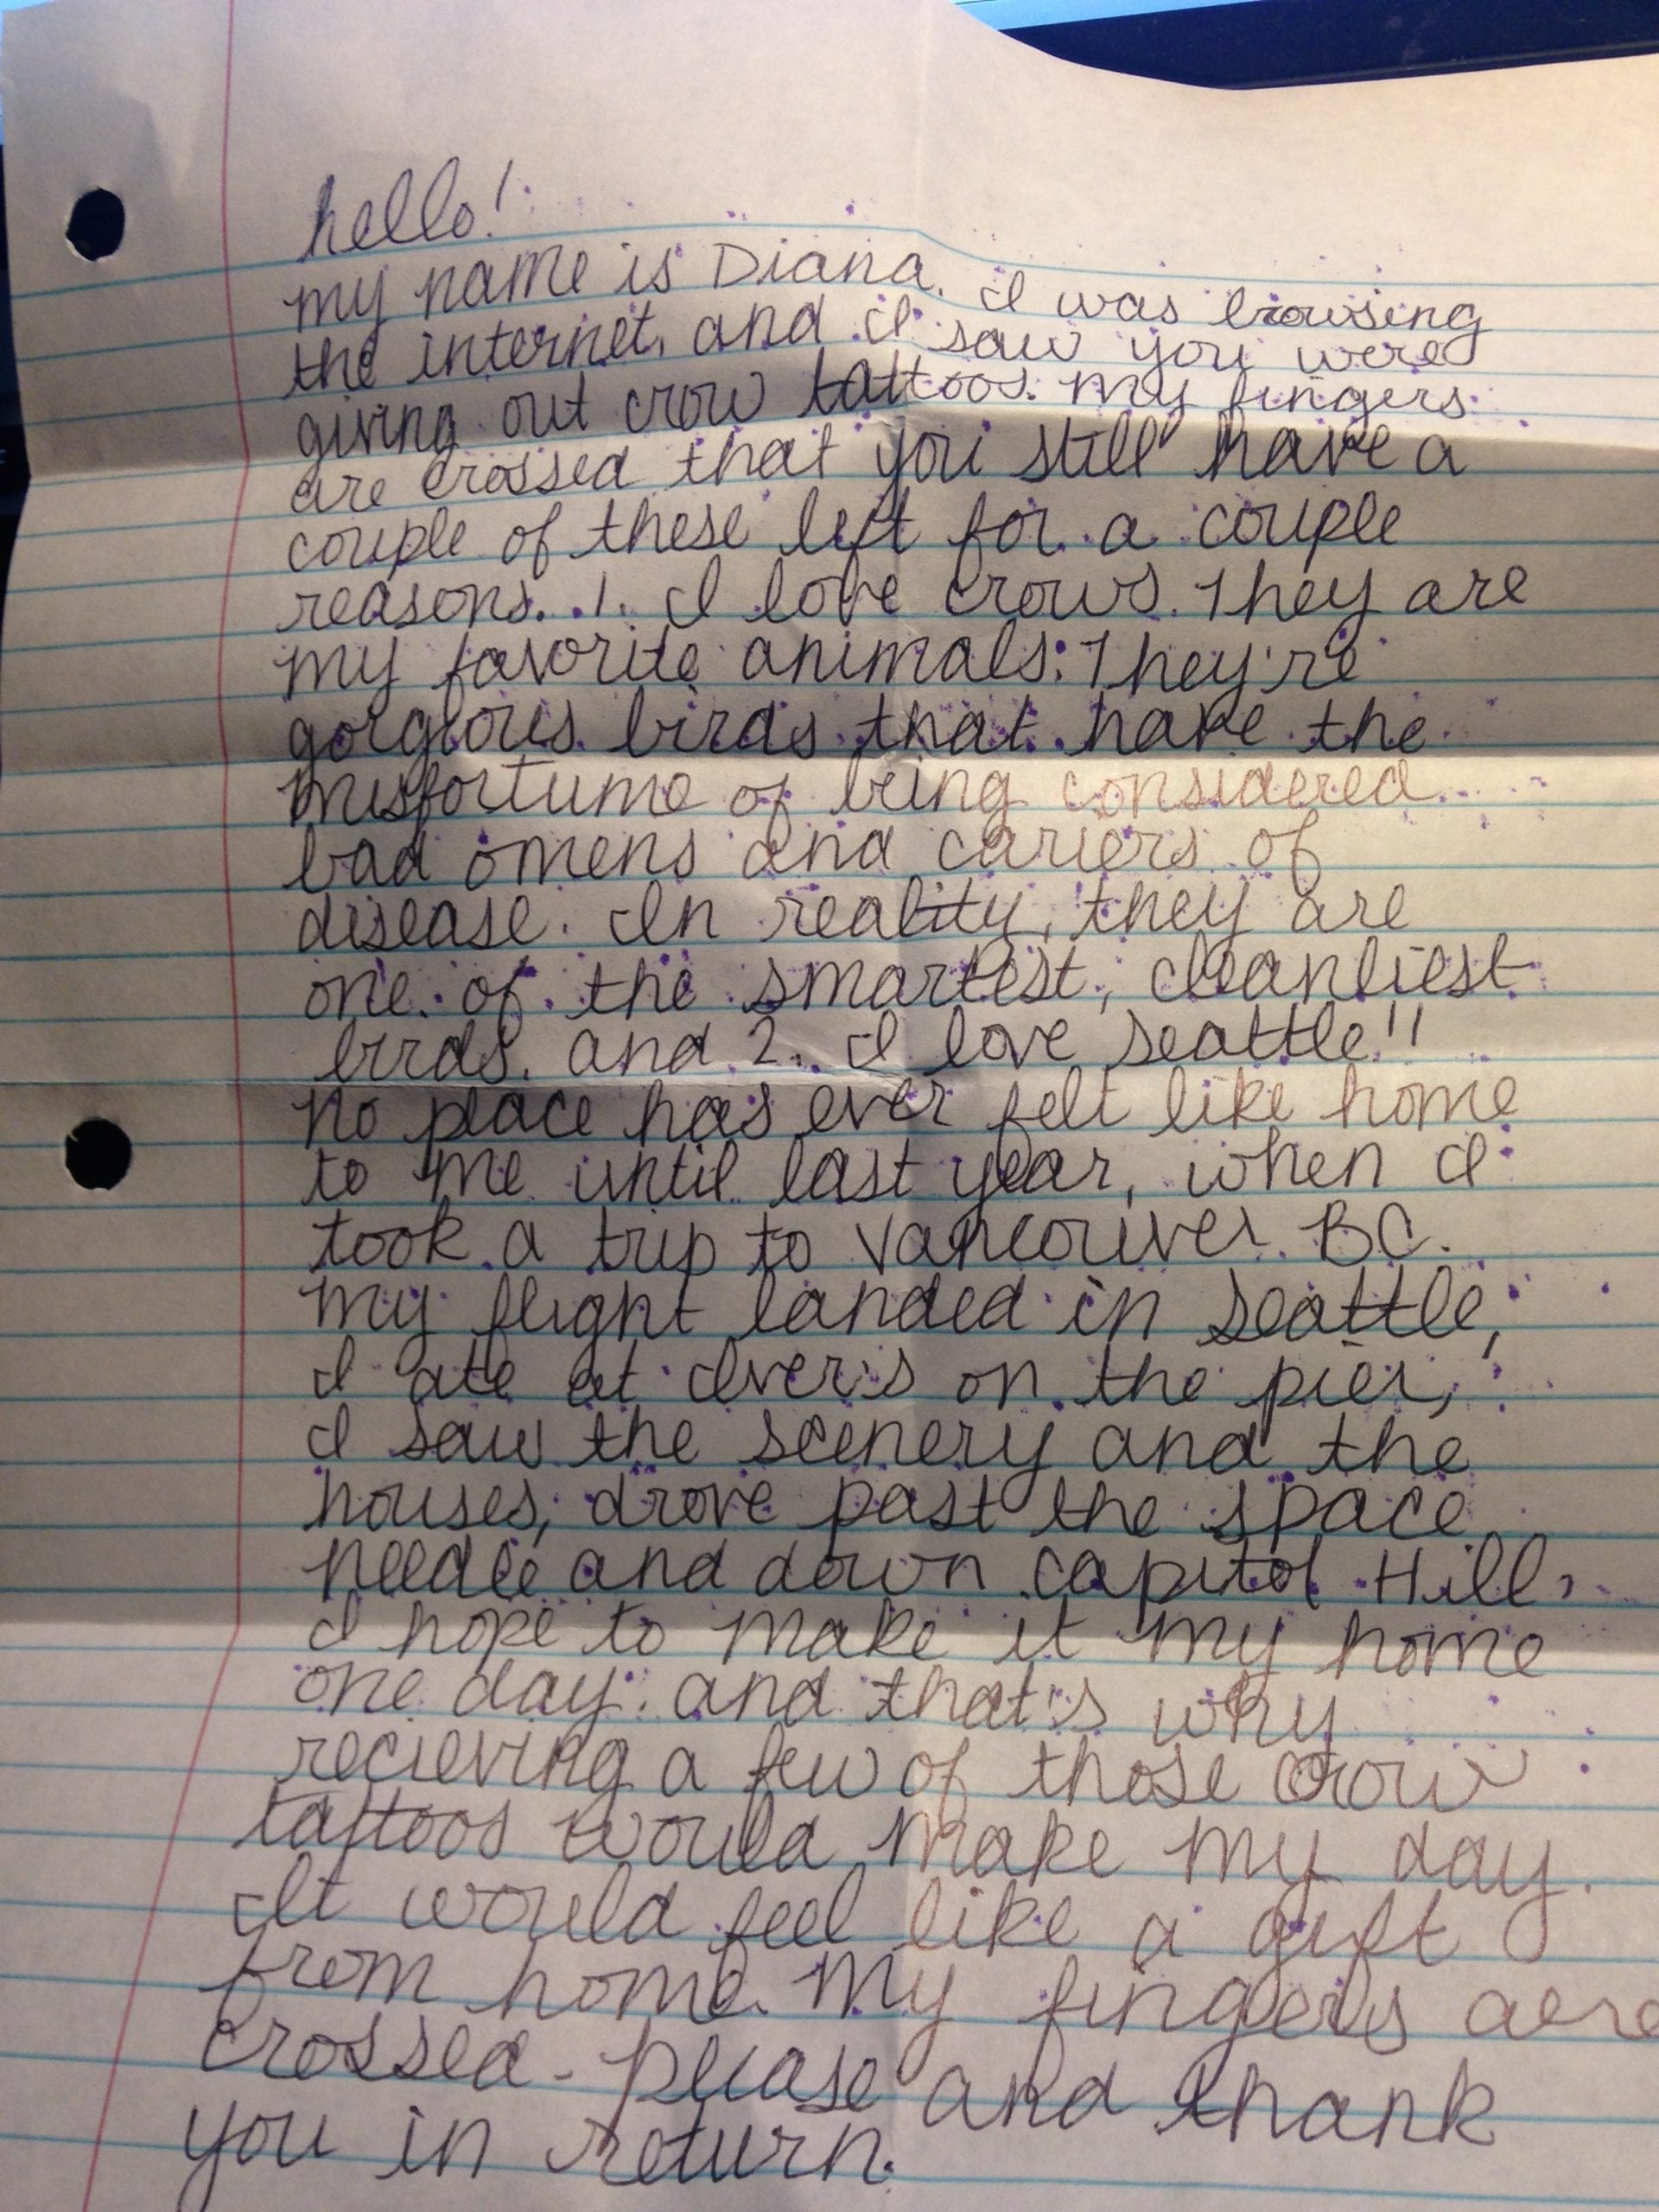 hello!
my name is Diana. I was browsing
the internet, and I saw you were
giving out crow tattoos. my fingers
are crossed that you still have a
couple of these left for a couple
reasons. 1. I love crows. They are
my favorite animals. They're
gorgious birds that have the
misfortume of being considered
bad omens and cariers of
disease. In reality, they are
one of the smartest, cleanliest
birds. and 2. I love seattle!!
no place has ever felt like home
to me until last year, when I
took a trip to Vancouver BC.
my flight landed in seattle,
I ate at Iver's on the pier,
I saw the scenery and the
houses, drove past the space
needle and down capitol Hill,
I hope to make it my home
one day. and that's why
recieving a few of those crow
tattoos would make my day.
It would feel like a gift
from home. my fingers are
crossed - please and thank
you in return.